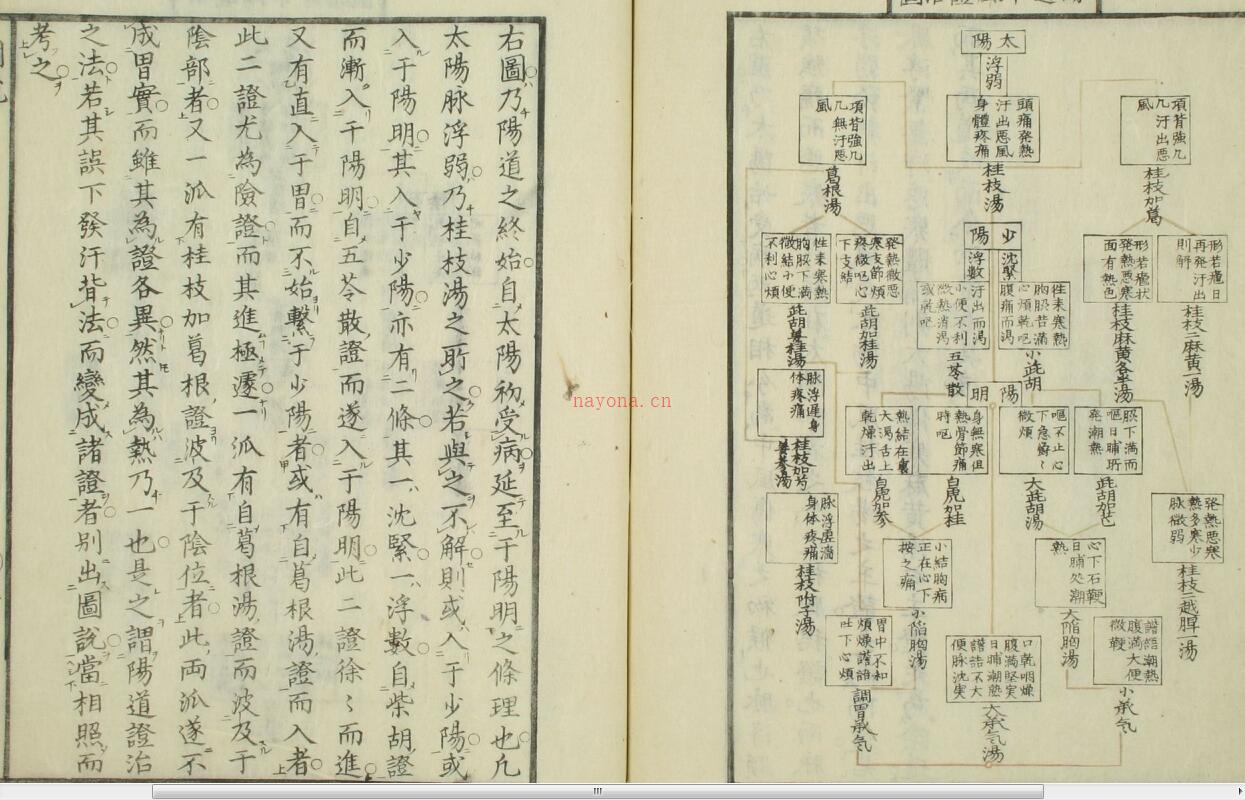 太陽
浮弱
項背強几
几汗出悪
風
桂枝加葛
頭痛発熱
汗出悪風
身體疼痛
桂枝湯
項背強几
几無汗悪
風
葛根湯
形若瘧日
再発汗出
則解
桂枝二麻黄一湯
形若瘧状
発熱悪寒
面有熱色
桂枝麻黄各半湯
少陽
沈緊
浮数
往来寒熱
胸脇苦満
心煩乾呕
腹痛而渇
小茈胡
汗出而渇
小便不利
微熱消渇
五苓散
発熱微悪
寒支節煩
疼微呕心
下支結
茈胡加桂湯
往来寒熱
胸脇下満
微結小便
不利心煩
茈胡姜桂湯
脉浮遅身
体疼痛
陽明
脇下満而
呕日晡所
発潮熱
呕不止心
下急鬱〻
微煩
大茈胡湯
身無寒但
熱骨節痛
時呕
白乕加桂
熱結在裏
大渇舌上
乾燥汗出
白乕加参
発熱悪寒
熱多寒少
脉微弱
桂枝二越脾一湯
身体疼痛
桂枝附子湯
心下石鞕
日晡処潮
熱
大陥胸湯
小結胸病
正在心下
按之痛
小陥胸湯
譫語潮熱
腹満大便
微鞕
小承气
口乾咽燥
腹満堅実
日晡潮熱
譫語不大
便脉沈実
大承气湯
胃中不和
煩燥譫語
吐下心煩
調胃承气
右圖乃陽道之終始自太陽初受病延至于陽明之條理也凡
太陽脉浮弱乃桂枝湯之所之若與之不解則或入于少陽或
入于陽明其入于少陽亦有二條其一沈緊一浮數自柴胡證
而漸入于陽明自五苓散證而遂入于陽明此二證徐〻而進
又有直入于胃而不始繫于少陽者或有自葛根湯證而入者
此二證尤為險證而其進極遽一派有自葛根湯證而波及于
陰部者又一派有桂枝加葛根證波及于陰位者此両派遂不
成胃實而雖其為證各異然其為熱乃一也是之謂陽道證治
之法若其誤下發汗背法而變成諸證者別出圖說當相照而
考之
nayona.cn